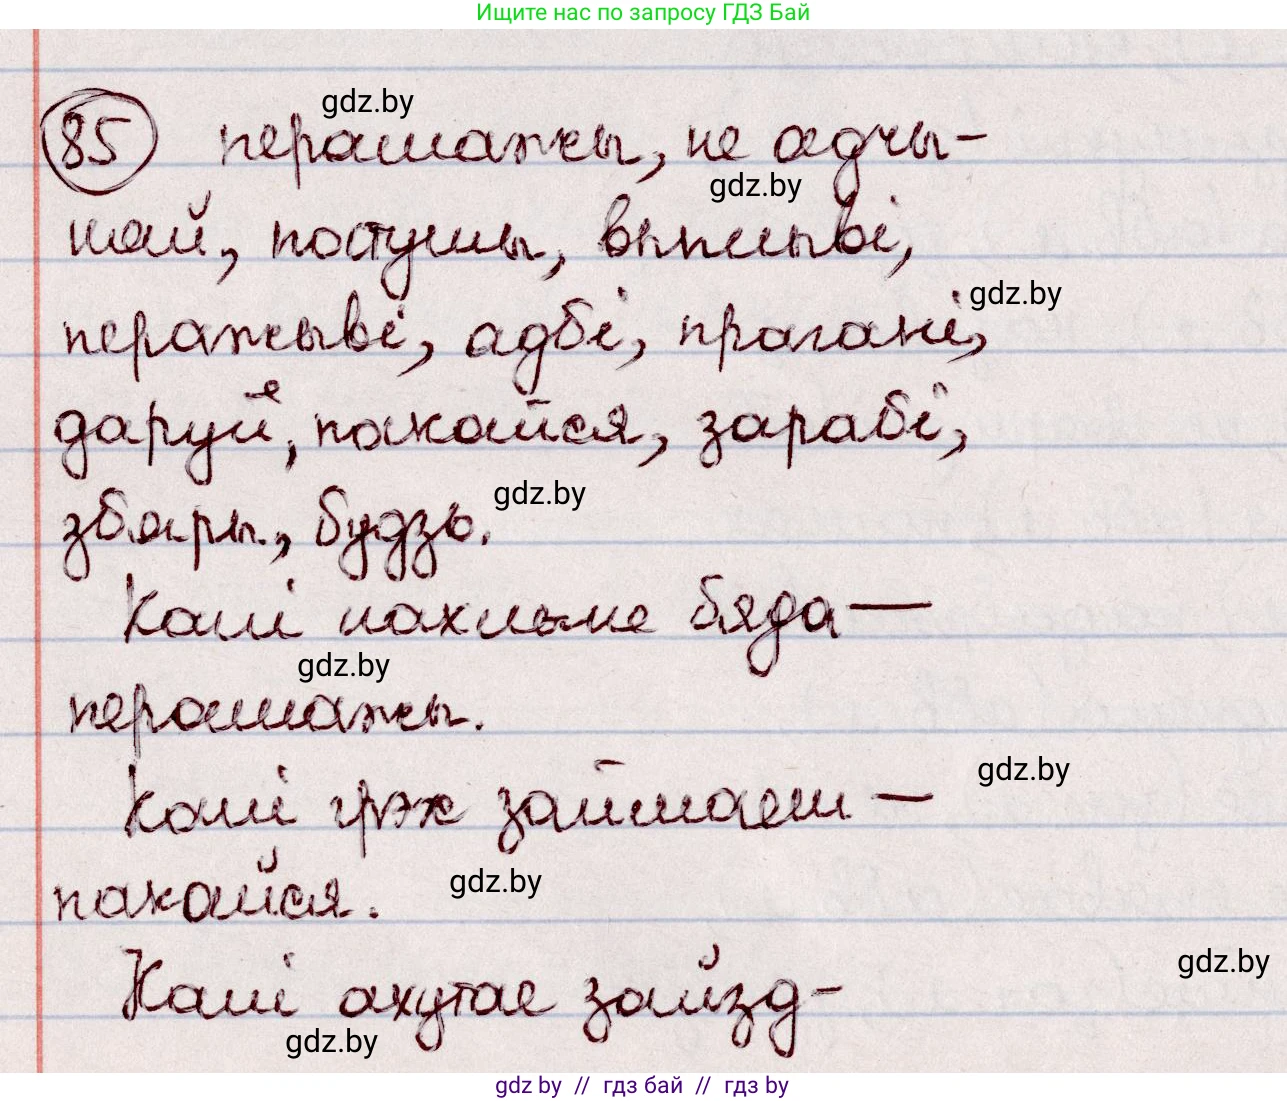 Ищите нас по запросу ГДЗ Бай
gdz.by
85 перамажы, не адчы-
gdz.by
най, постушы, выплыві,
gdz.by
перажыві, адбі, прагані,
даруй, пакайся, зарабі,
gdz.by
збяры, будзь.
Калі нахлыне бяда —
gdz.by
перамажы.
gdz.by
Калі грэх займаеш —
gdz.by
пакайся.
gdz.by
Калі ахутае зайзд-
gdz.by
gdz by // гдз бай // гдз by